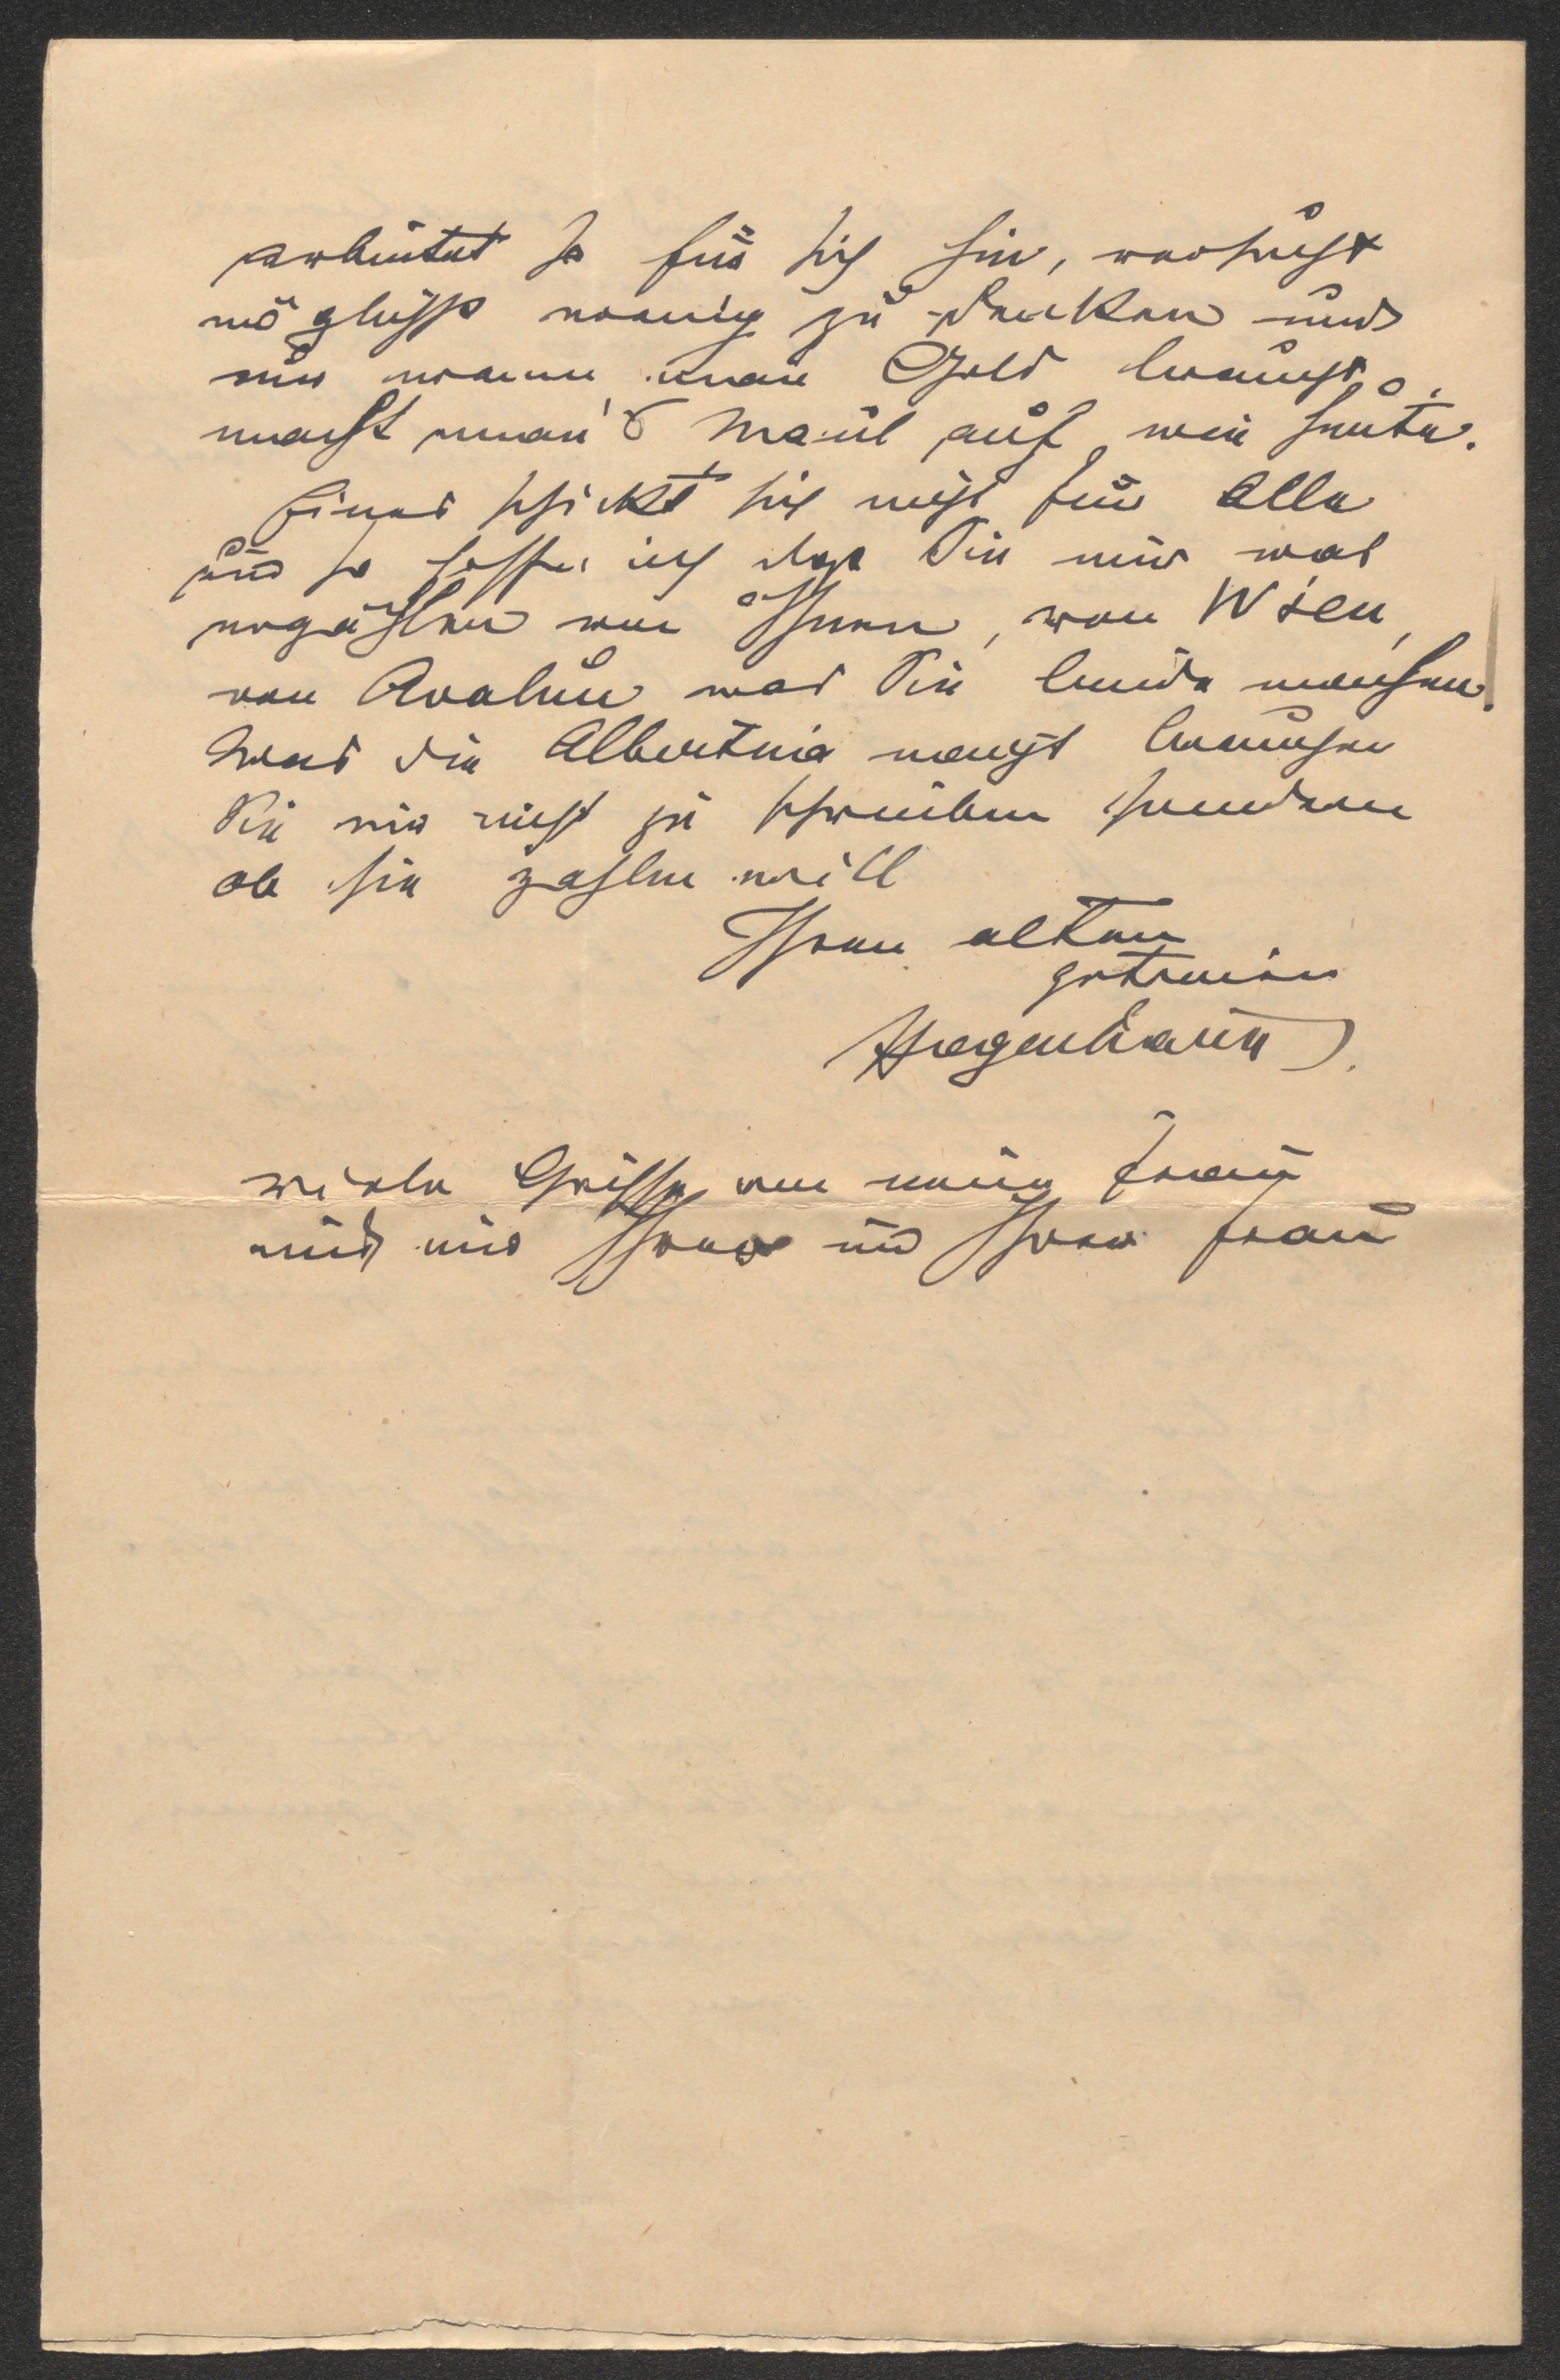 arbeitet so für sich hin, versucht
möglichst wenig zu denken und
nur wenn man Geld braucht
macht man's Maul auf wie heute.
Eines schickt sich nicht für Alle
und so hoffe ich dass Sie mir was
erzählen von Ihnen, von Wien,
von Avalun was Sie beide machen.
Was die Albertina macht brauchen
Sie mir nicht zu schreiben sondern
ob sie zahlen will
Ihren alten
getreuen
Hegenbarth
viele Grüsse von meiner Frau
und mir Ihnen und Ihrer Frau